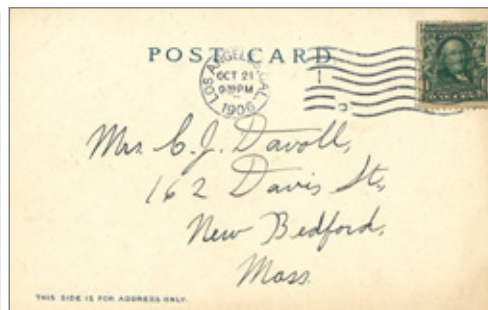 POST CARD
LOS ANGELES, CAL.
OCT 21
9 PM
1906
Mrs. C. J. Davoll,
162 Davis St,
New Bedford,
Mass.
THIS SIDE IS FOR ADDRESS ONLY.